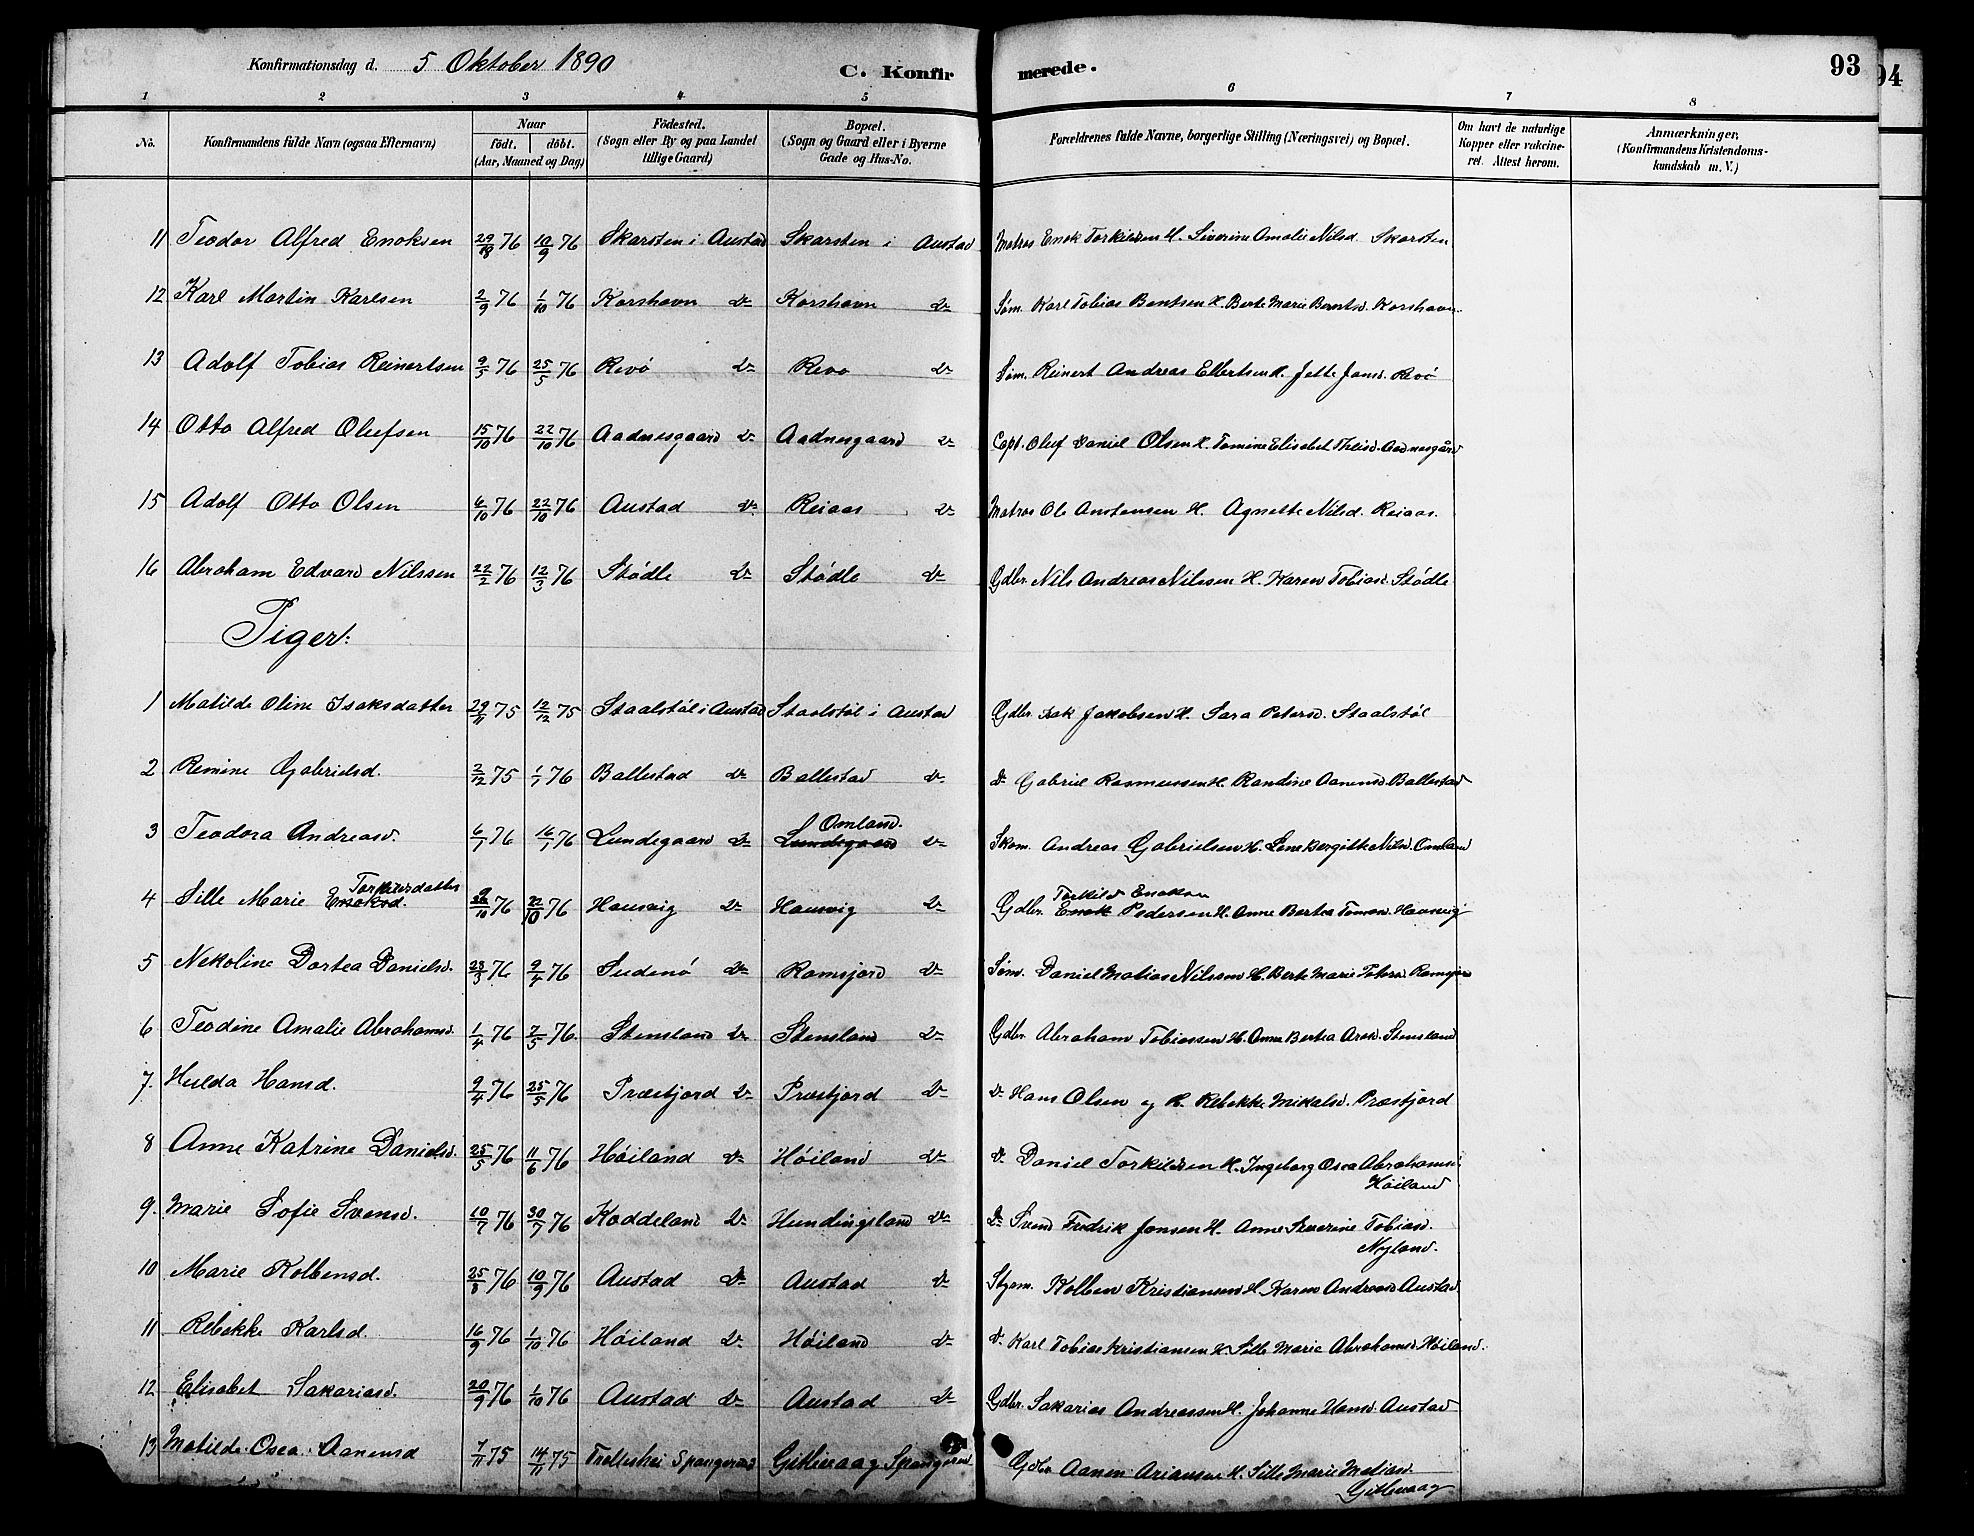 Konfirmationsdag d. 5 Oktober 1890 C. Konfirmerede. 93
94
1 2 3 4 5 6 7 8
No. Konfirmandens fulde Navn (ogsaa Efternavn) Naar födt. döbt. (Aar, Maaned og Dag) Födested. (Sogn eller By og paa Landet tillige Gaard) Bopæl. (Sogn og Gaard eller i Byerne Gade og Hus-No. Forældrenes fulde Navne, borgerlige Stilling (Næringsvei) og Bopæl. Om havt de naturlige Kopper eller vakcineret. Attest herom. Anmærkninger, (Konfirmandens Kristendomskundskab m. V.)
11 Teodor Alfred Enoksen 29/8 76 10/9 76 Skarsten i Austad Skarsten i Austad Matros Enok Torkildsen H. Siverine Amalie Nilsd. Skarsten
12 Karl Martin Karlsen 2/9 76 1/10 76 Korshavn do Korshavn do Søm. Karl Tobias Bentsen H. Berte Marie Berntsd. Korshavn
13 Adolf Tobias Reinertsen 9/5 76 25/5 76 Revö do Revo do Søm. Reinert Andreas Ellertsen H. Jette Jonsd. Revö
14 Otto Alfred Olufsen 15/10 76 22/10 76 Aadnesgaard do Aadnesgaard do Capt. Oluf Daniel Olsen H. Tomine Elisabet Theisd. Aadnesgård
15 Adolf Otto Olsen 6/10 76 22/10 76 Austad do Reiaas do Matros Ole Anstensen H. Agnette Nilsd. Reiaas.
16 Abraham Edvard Nilssen 22/2 76 12/3 76 Stødle do Stødle do Gdbr. Nils Andreas Nilssen H. Karen Tobiasd. Stødle
Piger:
1 Matilde Oline Isaksdatter 29/11 75 12/12 75 Staalstøl i Austad Staalstøl i Austad Gdbr. Isak Jakobsen H. Sara Petersd. Staalstøl
2 Remine Gabrielsd. 2/12 75 1/1 76 Ballestad do Ballestad do do Gabriel Rasmussen H. Randine Aanensd. Ballestad
3 Teodora Andreasd. 6/1 76 16/1 76 Lundegaard do Lundegaard Omland. do Skom. Andreas Gabrielsen H. Lene Bergitte Nilsd. Omland
4 Sille Marie Enoksd. Torkildsdatter /10 76 22/10 76 Hausvig do Hausvig do Gdbr. Enok Pedersen Torkild Enoksen H. Anne Bertea Tomasd. Hausvig
5 Nekoline Dortea Danielsd. 23/3 76 9/4 76 Sudenö do Ramsjord do Søm. Daniel Matias Nilssen H. Berte Marie Petersd. Ramsjord
6 Teodine Amalie Abrahamsd. 1/4 76 7/5 76. Stensland do Stensland do Gdbr. Abraham Tobiassen H. Anne Bertea Arosd. Stensland
7. Hulda Hansd. 9/4 76 25/5 76 Præstjord do Præstjord do do Hans Olsen og H. Rebekke Mikalsd. Præstjord
8 Anne Katrine Danielsd. 25/5 76 11/6 76 Høiland do Høiland do do Daniel Torkildsen H. Ingeborg Osea Abrahamsd. Høiland
9. Marie Sofie Svensd. 10/7 76 30/7 76 Koddeland do Hundingsland do do Svend Fredrik Jonsen H. Anne Severine Tobiasd. Nyland.
10 Marie Kolbensd. 25/8 76 10/9 76 Austad do Austad do Stym. Kolben Kristiansen H. Karen Andreasd. Austad
11 Rebekke Karlsd. 16/9 76 1/10 76 Høiland do Høiland do do Karl Tobias Kristiansen H. Sille Marie Abrahamsd. Høiland.
12 Elisabet Sakariasd. 20/9 76 1/10 76 Austad do Austad do Gdbr. Sakarias Andreassen H. Johanne Hansd. Austad
13 Matilde Osea Aanensd 7/11 75 14/11 75 Spangereid Gitlevaag Spangereid Gdbr Aanen Ariansen H. Sille Marie Matiasd Gitlevaag